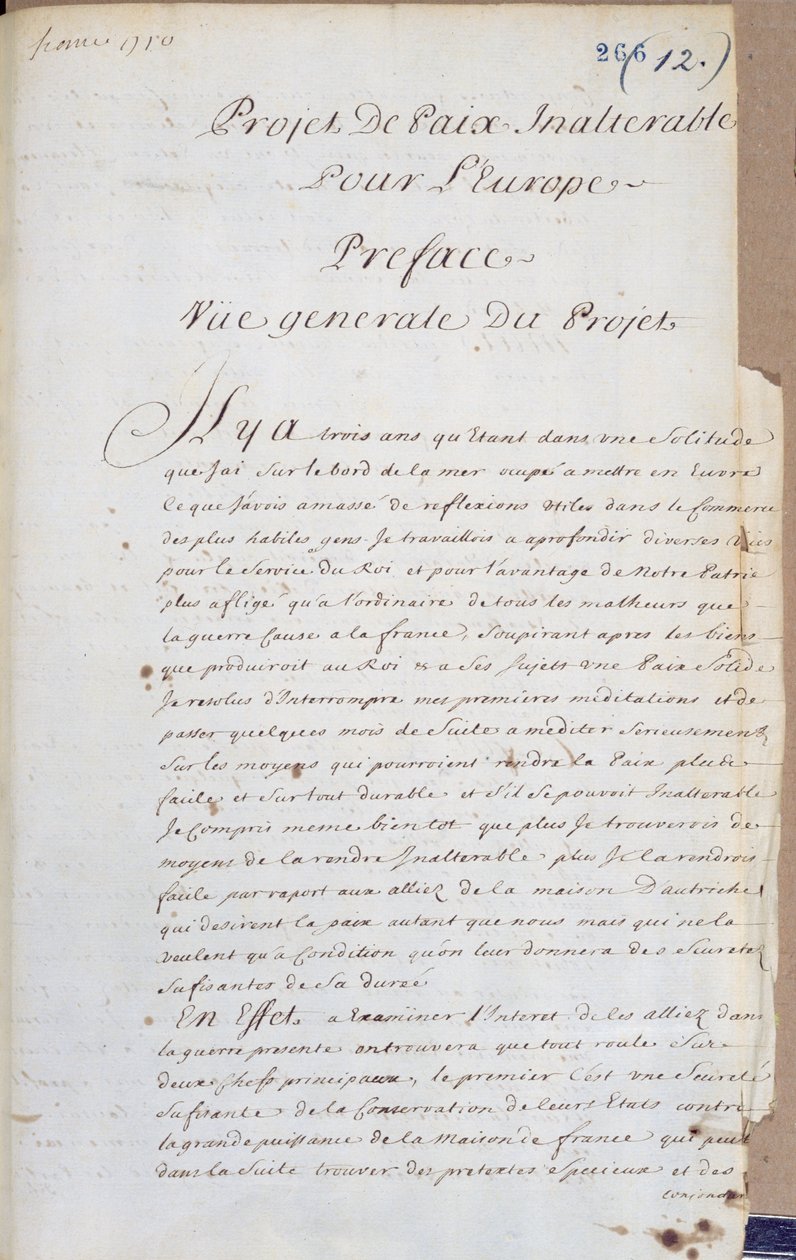 france 1710
266 (12.)
Projet De Paix Inalterable
Pour L'Europe
Preface
Vüe generale Du Projet
Il y a trois ans qu'Etant dans une Solitude
que J'ai Sur le bord de la mer ocupé a mettre en Euvre
ce que J'avois amassé de reflexions Utiles dans le Commerce
des plus habiles gens Je travaillois a aprofondir diverses Vües
pour le Service du Roi et pour l'avantage de Notre Patrie
plus afligé qu'a l'ordinaire de tous les malheurs que
la guerre Cause a la france, Soupirant apres les biens
que produiroit au Roi & a Ses Sujets une Paix Solide
Je resolus d'Interrompre mes premieres meditations et de
passer quelques mois de Suite a mediter Serieusement
Sur les moyens qui pourroient rendre la Paix plus
facile et Sur tout durable et S'il Se pouvoit Inalterable
Je Compris meme bientot que plus Je trouverois de
moyens de la rendre Inalterable plus Je la rendrois
facile par raport aux alliez de la maison D'autriche
qui desirent la paix autant que nous mais qui ne la
veulent qu'a Condition qu'on leur donnera des Seuretez
Sufisantes de Sa dureé
En Effet a Examiner l'Interet de ces alliez dans
la guerre presente on trouvera que tout roule Sur
deux Chefs principaux, le premier C'est une Seureté
Sufisante de la Conservation de leurs Etats contre
la grande puissance de la Maison de france qui peut
dans la Suite trouver des pretextes Specieux et des